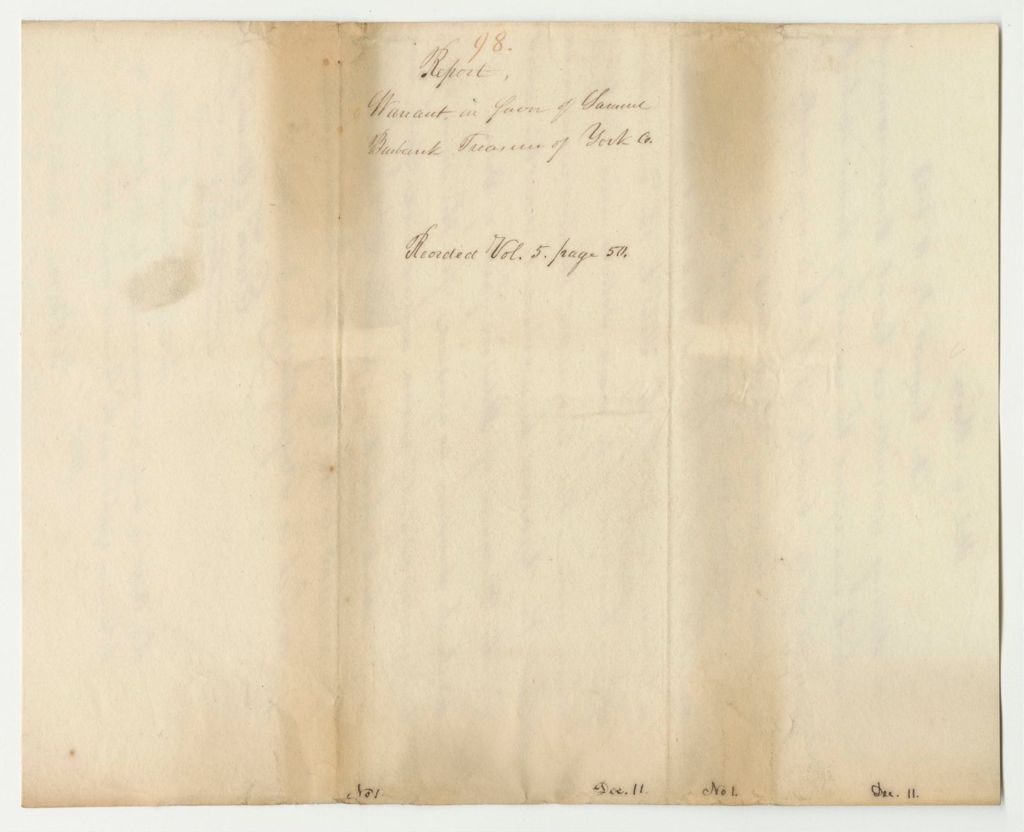 98.
Report,
Warrant in favor of Samuel
Burbank Treasurer of York Co.
Recorded Vol. 5. page 50.
No 1. Dec. 11. No 1. Dec. 11.